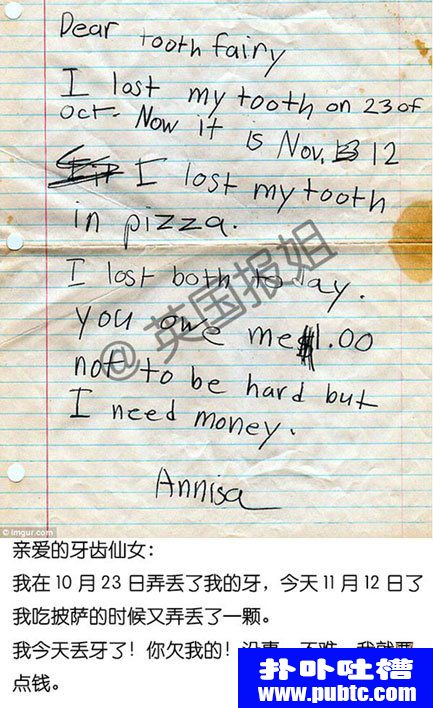 Dear tooth fairy
I lost my tooth on 23 of
oct. Now it is Nov. 12
I lost my tooth
in pizza.
I lost both today.
you owe me $1.00
not to be hard but
I need money.
Annisa
@英国报姐
© imgur.com
亲爱的牙齿仙女：
我在10月23日弄丢了我的牙，今天11月12日了
我吃披萨的时候又弄丢了一颗。
我今天丢牙了！你欠我的！
点钱。
扑卟吐槽
www.pubtc.com